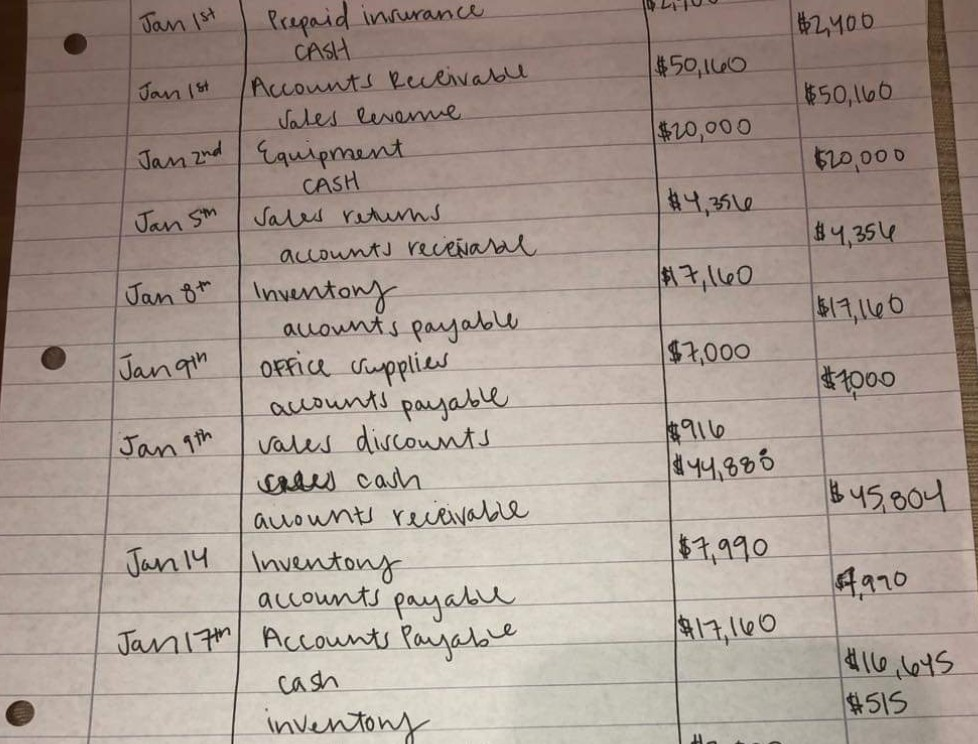 Jan 1st Prepaid insurance
CASH $2,400
Jan 1st Accounts Receivable $50,160
Sales Revenue $50,160
Jan 2nd Equipment $20,000
CASH $20,000
Jan 5th Sales returns $4,356
accounts receivable $4,356
Jan 8th Inventory $17,160
accounts payable $17,160
Jan 9th OFFice supplies $7,000
accounts payable $7000
Jan 9th sales discounts $916
cash $44,888
accounts receivable $45,804
Jan 14 Inventory $7,990
accounts payable $7,990
Jan 17th Accounts Payable $17,160
cash $16,645
inventory $515